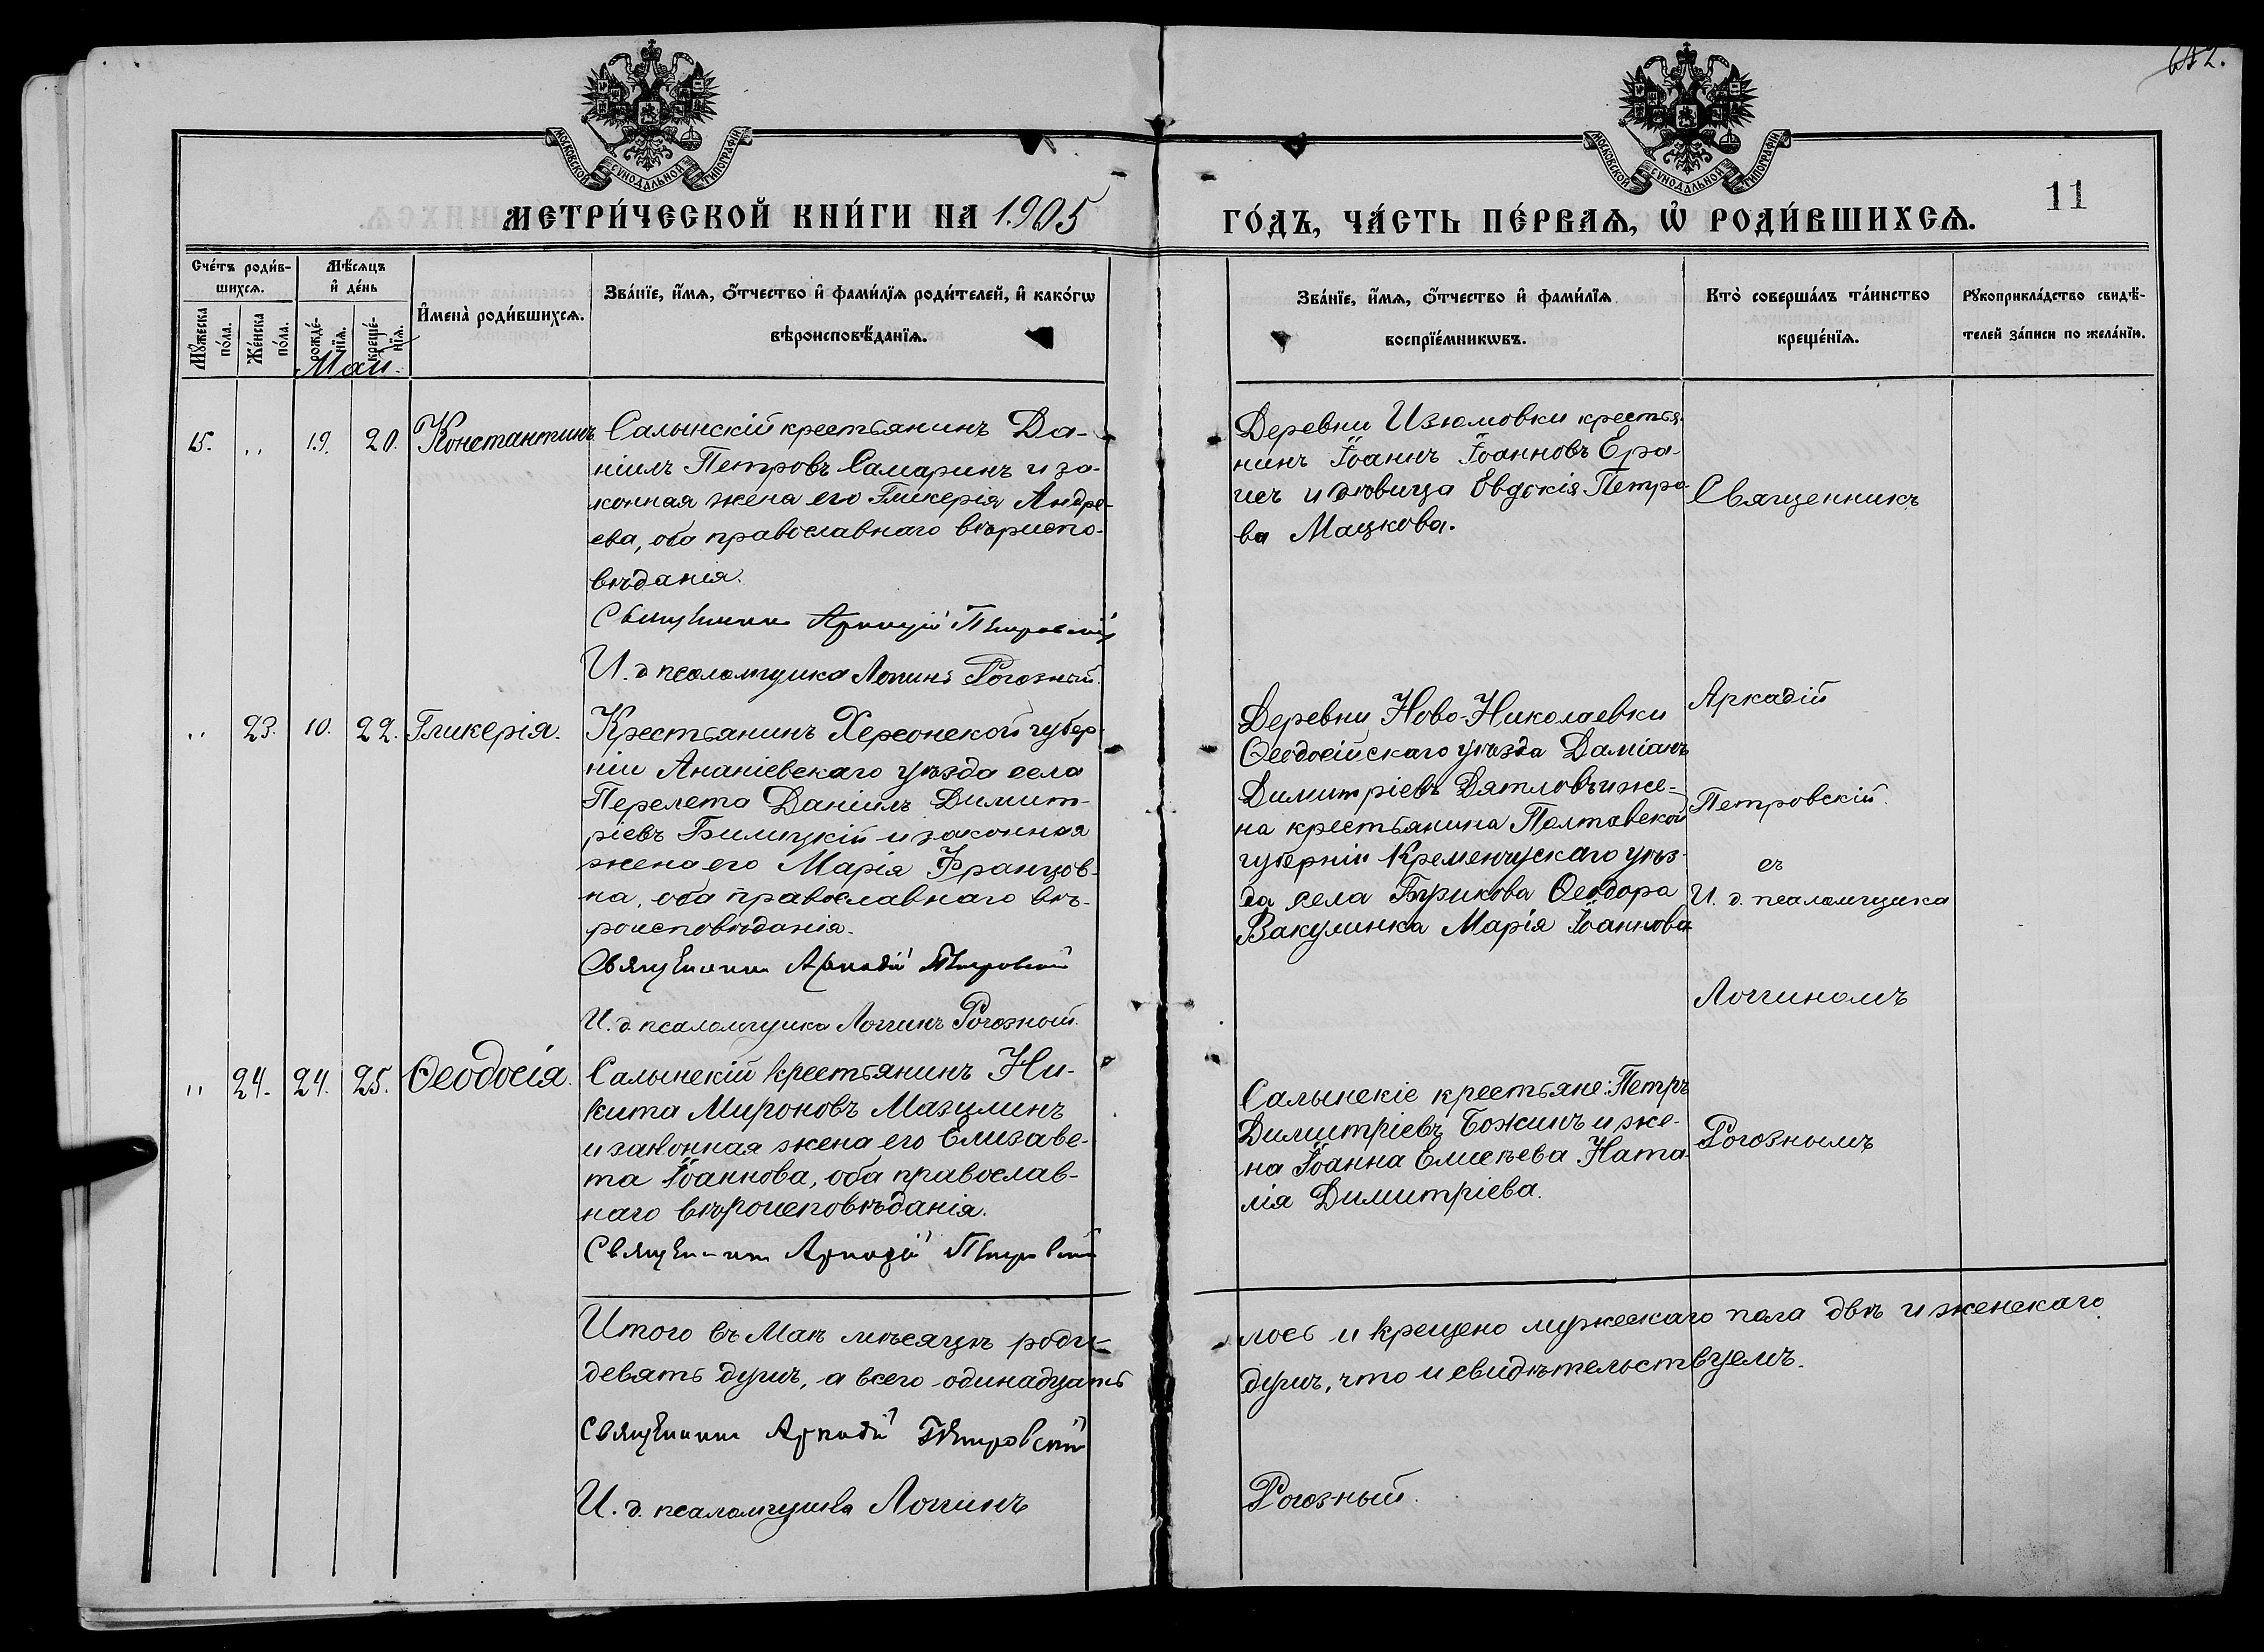 642.
МОСКОВСКОЙ СУНОДАЛЬНОЙ ТИПОГРАФІИ
МОСКОВСКОЙ СУНОДАЛЬНОЙ ТИПОГРАФІИ
11
МЕТРИ́ЧЕСКОЙ КНИ́ГИ НА 1905 ГО́ДЪ, ЧА́СТЬ ПЕ́РВАѦ, Ѡ҆ РОДИ́ВШИХСѦ.
Сче́тъ роди́в-
шихсѧ.
Мꙋ́жеска по́ла.
Же́нска по́ла.
Мѣ́сѧцъ
и҆ де́нь
рожде́-
нїѧ.
креще́-
нїѧ.
Май.
И҆мена̀ роди́вшихсѧ.
Зва́нїе, и҆́мѧ, ѻ҆́тчество и҆ фами́лїѧ роди́телей, и҆ како́гѡ
вѣроисповѣ́данїѧ.
Зва́нїе, и҆́мѧ, ѻ҆́тчество и҆ фами́лїѧ
воспрїе́мникѡвъ.
Кто̀ соверша́лъ та́инство
креще́нїѧ.
Рꙋкоприкла́дство свидѣ́-
телей за́писи по жела́нїю.
15. „ 19. 20. Константинъ
Салынскій крестьянинъ Да-
ніилъ Петровъ Самаринъ и за-
конная жена его Гликерія Андре-
ева, оба православнаго вѣриспо-
вѣданія.
Священникъ Аркадій Петровскій
И. д. псаломщика Логгинъ Рогозный.
Деревни Изюмовки крестья-
нинъ Іоаннъ Іоанновъ Ера-
и дѣвица Евдокія Петро-
ва Мацкова.
„ 23. 10. 22. Гликерія.
Крестьянинъ Херсонской губер-
ніи Ананіевскаго уѣзда села
Перелета Даніилъ Димит-
ріевъ Билицкій и законная
жена его Марія Францов-
на, оба православнаго вѣ-
роисповѣданія.
Священникъ Аркадій Петровскій
И. д. псаломщика Логгинъ Рогозный.
Деревни Ново-Николаевки
Ѳеодосійскаго уѣзда Даміанъ
Димитріевъ Дятловъ и же-
на крестьянина Полтавской
губерніи Кременчугскаго уѣз-
да села Ѳеодора
Вакулинка Марія Іоаннова
„ 24. 24. 25. Ѳеодосія.
Салынскій крестьянинъ Ни-
кита Мироновъ Мазулинъ
и законная жена его Елизаве-
та Іоаннова, оба православ-
наго вѣроисповѣданія.
Священникъ Аркадій Петровскій
Салынскіе крестьяне: Петръ
Димитріевъ Божинъ и же-
на Іоанна Елисѣева Ната-
лія Димитріева.
Священникъ
Аркадій
Петровскій
съ
И. д. псаломщика
Логгиномъ
Рогознымъ
Итого въ Маѣ мѣсяцѣ роди- лось и крещено мужескаго пола двѣ и женскаго
девять душъ, а всего одинадцать душъ, что и свидѣтельствуемъ.
Священникъ Аркадій Петровскій
И. д. псаломщика Логгинъ Рогозный.